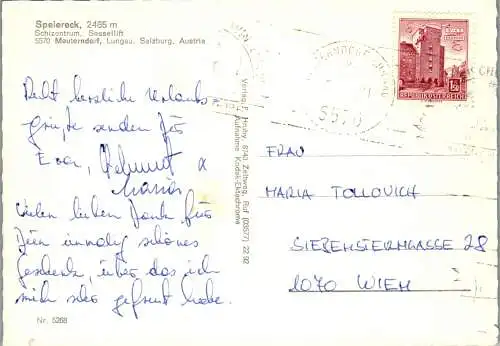 Speiereck, 2465 m
Schizentrum, Sessellift
5570 Mauterndorf, Lungau, Salzburg, Austria
Recht herzliche Urlaubs-
grüße senden für
Eva, Helmut &
Vielen lieben Dank für
Dein schönes
Geschenk, über das ich
mich sehr gefreut habe.
Nr. 5268
Verlag F. Hruby, 8740 Zeltweg, Ruf (03577) 22 92
Aufnahme Kodak-Ektachrome
REPUBLIK ÖSTERREICH
1.50
5570
FRAU
MARIA TOLLOVICH
SIEBENSTERNGASSE 28
1070 WIEN